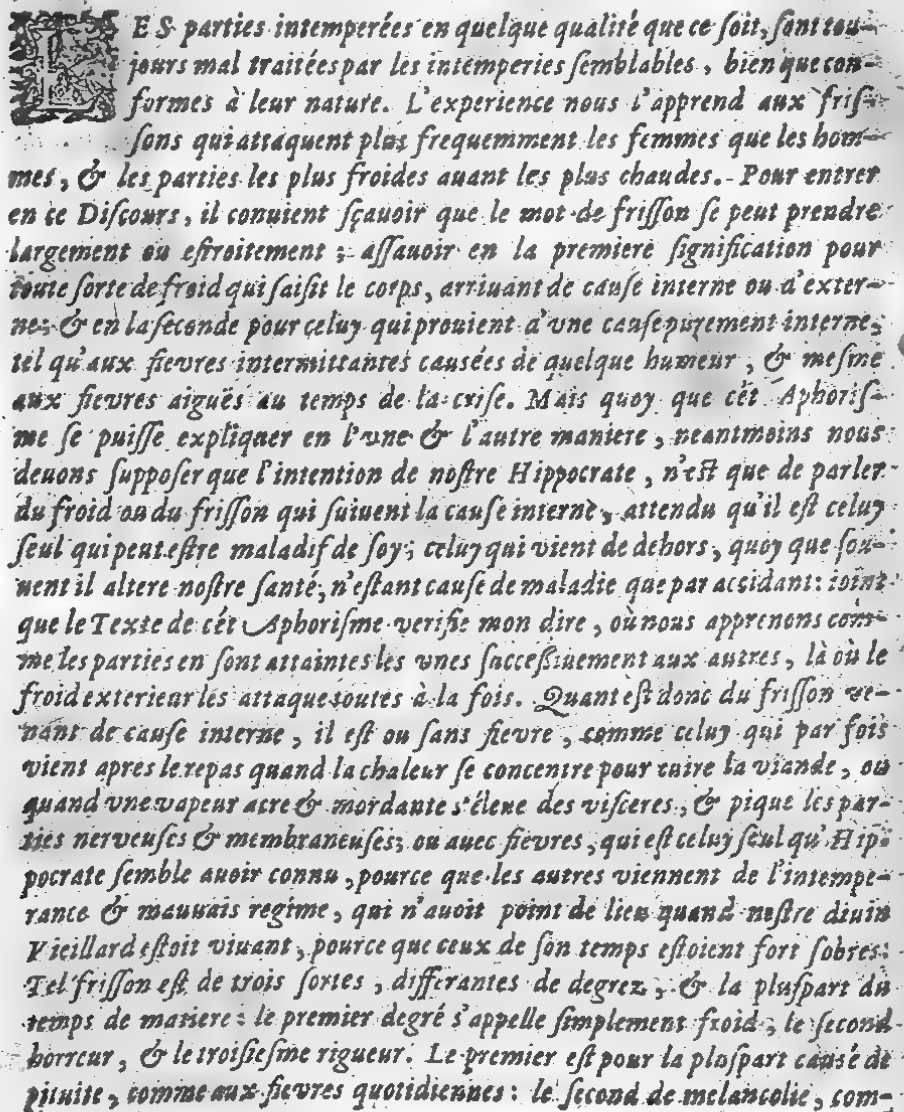 LES parties intemperées en quelque qualité que ce ſoit, ſont tou-
jours mal traitées par les intemperies ſemblables, bien que con-
formes à leur nature. L'experience nous l'apprend aux friſ-
ſons qui attaquent plus frequemment les femmes que les hom-
mes, & les parties les plus froides auant les plus chaudes. Pour entrer
en ce Diſcours, il conuient ſçauoir que le mot de friſſon ſe peut prendre
largement ou eſtroitement; aſſauoir en la premiere ſignification pour
toute ſorte de froid qui ſaiſit le corps, arriuant de cauſe interne ou d'exter-
ne: & en la ſeconde pour celuy qui prouient d'vne cauſe purement interne,
tel qu'aux fievres intermittantes causées de quelque humeur, & meſme
aux fievres aiguës au temps de la criſe. Mais quoy que cét Aphoriſ-
me ſe puiſſe expliquer en l'vne & l'autre maniere, neantmoins nous
deuons ſuppoſer que l'intention de noſtre Hippocrate, n'eſt que de parler
du froid ou du friſſon qui ſuiuent la cauſe interne, attendu qu'il eſt celuy
ſeul qui peut eſtre maladif de ſoy; celuy qui vient de dehors, quoy que ſou-
uent il altere noſtre ſanté, n'eſtant cauſe de maladie que par accidant: ioint
que le Texte de cét Aphoriſme verifie mon dire, où nous apprenons com-
me les parties en ſont attaintes les vnes ſucceſſiuement aux autres, là où le
froid exterieur les attaque toutes à la fois. Quant eſt donc du friſſon ve-
nant de cauſe interne, il eſt ou ſans fievre, comme celuy qui par fois
vient apres le repas quand la chaleur ſe concentre pour cuire la viande, ou
quand vne vapeur acre & mordante s'éleue des viſceres, & pique les par-
ties nerveuſes & membraneuſes; ou auec fievres, qui eſt celuy ſeul qu'Hip-
pocrate ſemble auoir connu, pource que les autres viennent de l'intempe-
rance & mauuais regime, qui n'auoit point de lieu quand noſtre diuin
Vieillard eſtoit viuant, pource que ceux de ſon temps eſtoient fort ſobres:
Tel friſſon eſt de trois ſortes, differantes de degrez, & la pluſpart du
temps de matiere: le premier degré s'appelle ſimplement froid, le ſecond
horreur, & le troiſieſme rigueur. Le premier eſt pour la pluſpart causé de
pituite, comme aux fievres quotidiennes: le ſecond de melancolie, com-